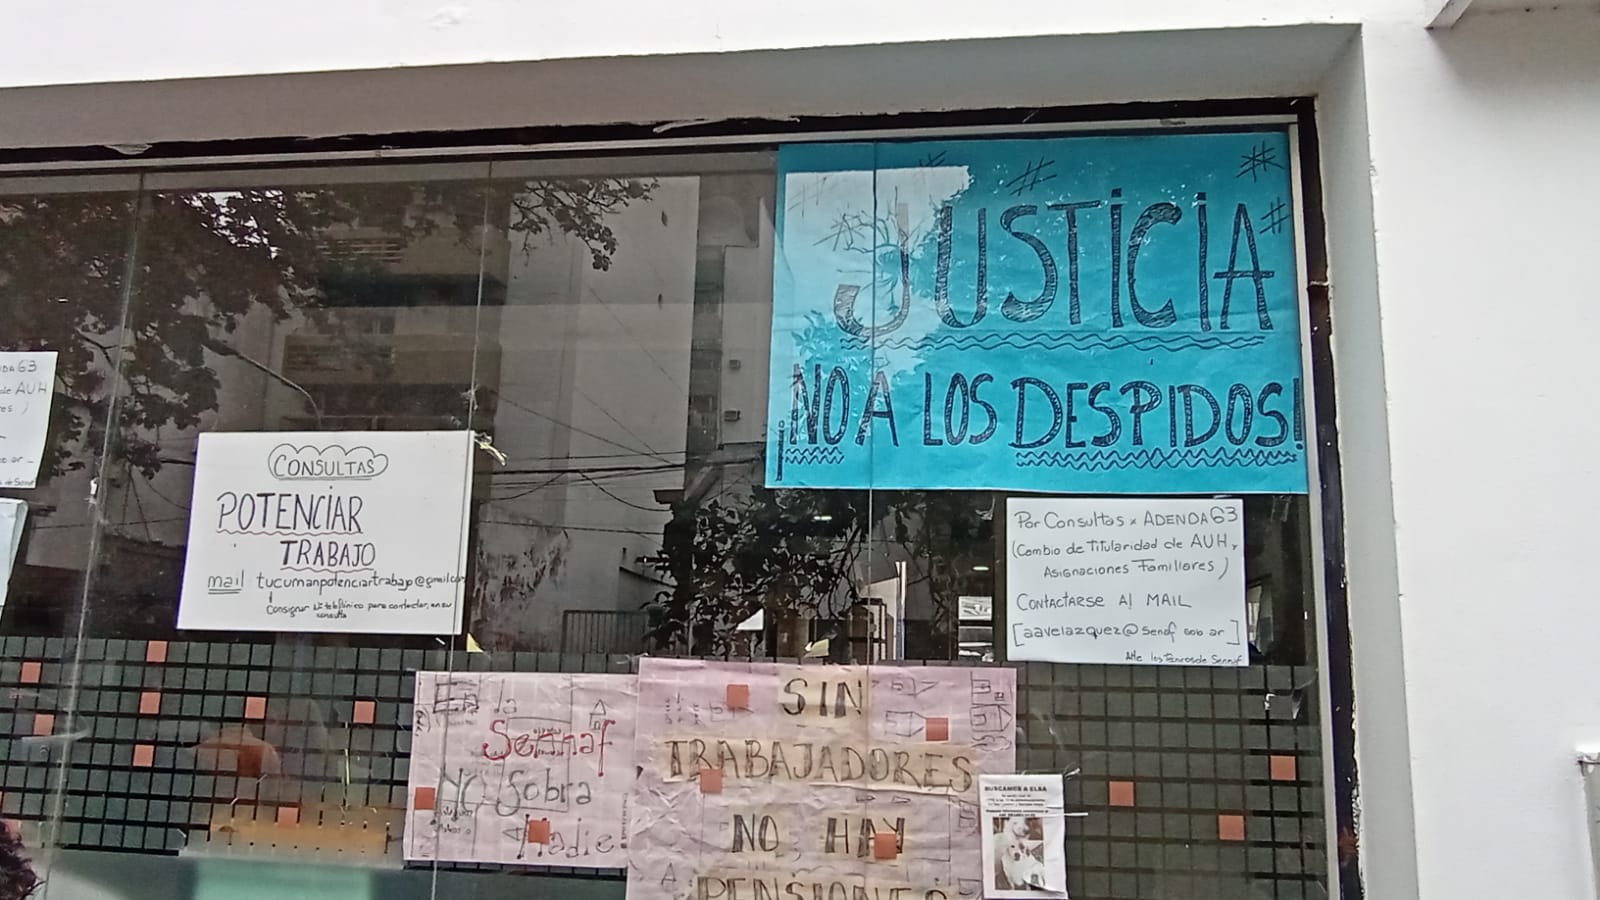 JUSTICIA
NO A LOS DESPIDOS!
63
de AUH
CONSULTAS
POTENCIAR
TRABAJO
mail tucumanpotenciartrabajo@gmail.com
Consignar Nº telefónico para contactar, en su
consulta
Por Consultas x ADENDA 63
(Cambio de Titularidad de AUH y
Asignaciones Familiares)
CONTACTARSE Al MAIL
[aavelazquez@senaf gob ar]
Atte los técnicos de Sennaf
En la
Sennaf
No Sobra
Nadie
SIN
TRABAJADORES
NO HAY
PENSIONES
BUSCAMOS A ELBA